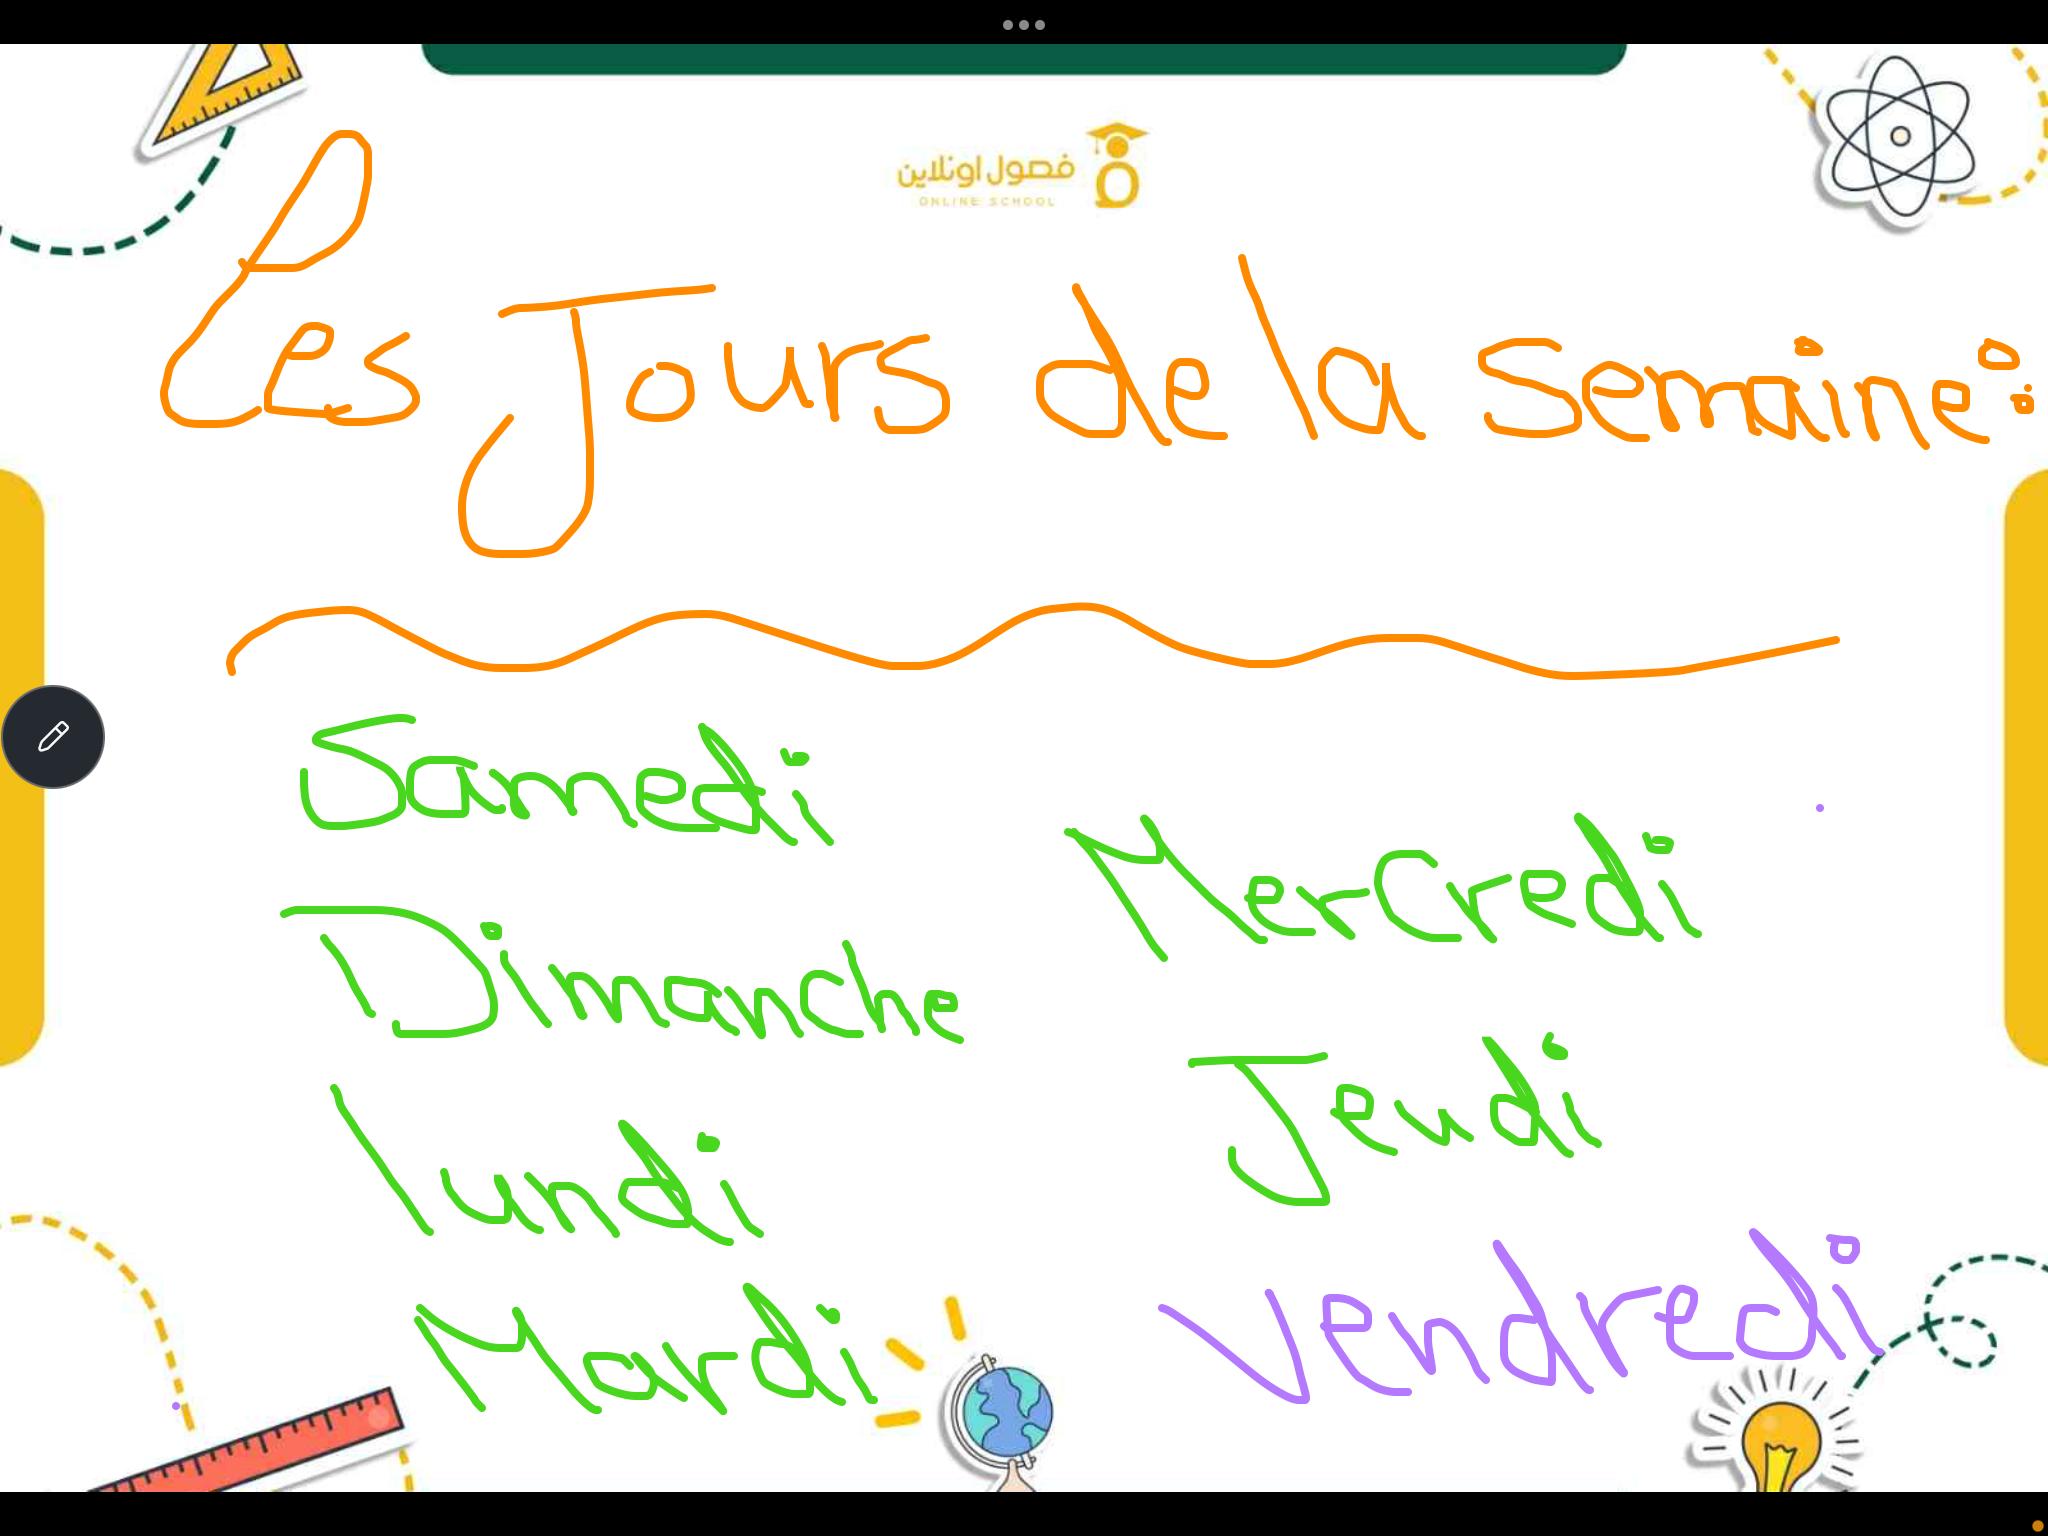 فصول اونلاين
ONLINE SCHOOL
Les Jours de la Semaine:
Samedi
Dimanche
lundi
Mardi
MerCredi
Jeudi
Vendredi